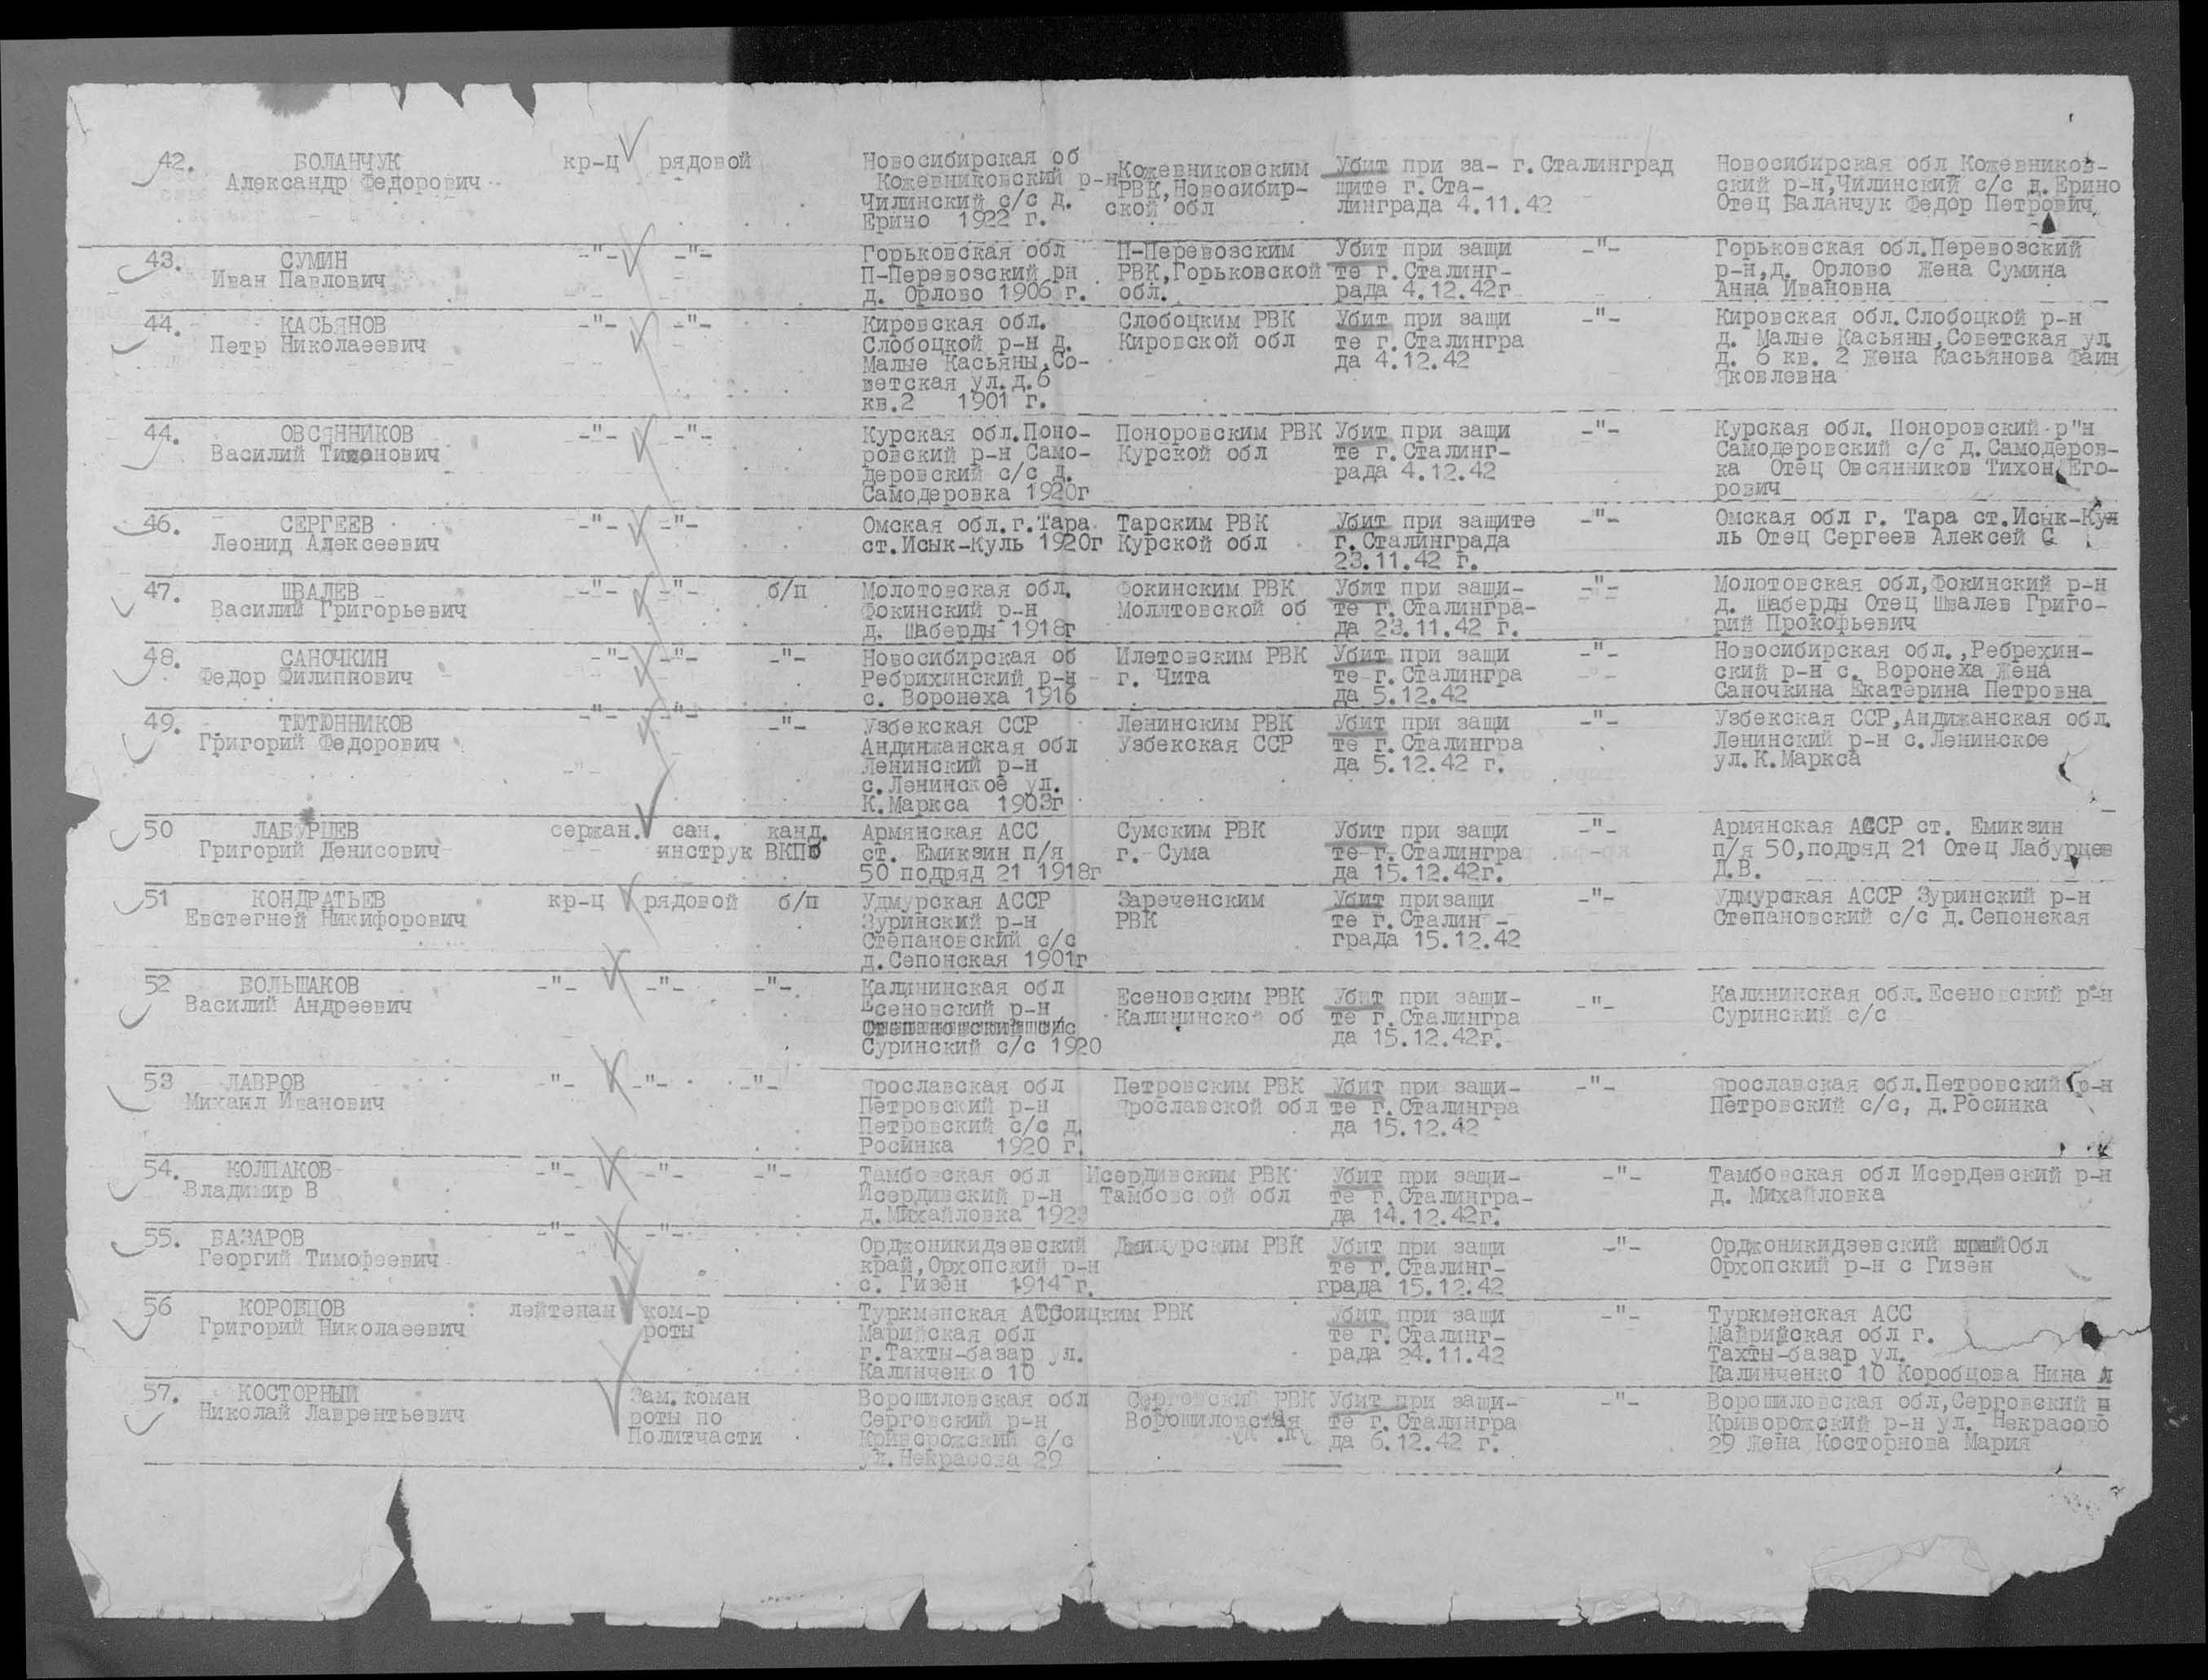 42. БОЛАНЧУК кр-ц рядовой Новосибирская об Кожевниковским Убит при за- г.Сталинград Новосибирская обл Кожевников-
Александр Федорович Кожевниковский р-н РВК,Новосибир- щите г.Ста- ский р-н,Чилинский с/с д.Ерино
Чилинский с/с д. ской обл линграда 4.11.42 Отец Баланчук Федор Петрович
Ерино 1922 г.
43. СУМИН -"- -"- Горьковская обл П-Перевозским Убит при защи -"- Горьковская обл.Перевозский
Иван Павлович П-Перевозский рн РВК,Горьковской те г.Сталинг- р-н,д. Орлово Жена Сумина
д. Орлово 1906 г. обл. рада 4.12.42г Анна Ивановна
44. КАСЬЯНОВ -"- -"- Кировская обл. Слобоцким РВК Убит при защи -"- Кировская обл.Слобоцкой р-н
Петр Николаеевич Слобоцкой р-н д. Кировской обл те г.Сталингра д. Малые Касьяны,Советская ул.
Малые Касьяны,Со- да 4.12.42 д. 6 кв. 2 Жена Касьянова Фаин
ветская ул.д.6 Яковлевна
кв.2 1901 г.
44. ОВСЯННИКОВ -"- -"- Курская обл.Поно- Поноровским РВК Убит при защи -"- Курская обл. Поноровский р"н
Василий Тихонович ровский р-н Само- Курской обл те г.Сталинг- Самодеровский с/с д.Самодеров-
деровский с/с д. рада 4.12.42 ка Отец Овсянников Тихон Его-
Самодеровка 1920г рович
46. СЕРГЕЕВ -"- -"- Омская обл.г.Тара Тарским РВК Убит при защите -"- Омская обл г. Тара ст.Исык-Ку
Леонид Алексеевич ст.Исык-Куль 1920г Курской обл г.Сталинграда ль Отец Сергеев Алексей С
23.11.42 г.
47. ШВАЛЕВ -"- -"- б/п Молотовская обл. Фокинским РВК Убит при защи- -"- Молотовская обл,Фокинский р-н
Василий Григорьевич Фокинский р-н Молятовской об те г.Сталингра- д. Шаберды Отец Швалев Григо-
д. Шаберды 1918г да 23.11.42 г. рий Прокофьевич
48. САНОЧКИН -"- -"- -"- Новосибирская об Илетовским РВК Убит при защи -"- Новосибирская обл.,Ребрехин-
Федор Филиппович Ребрихинский р-н г. Чита те г.Сталингра ский р-н с. Воронеха Жена
с. Воронеха 1916 да 5.12.42 Саночкина Екатерина Петровна
49. ТЮТЮННИКОВ -"- -"- -"- Узбекская ССР Ленинским РВК Убит при защи -"- Узбекская ССР,Андижанская обл.
Григорий Федорович Андинжанская обл Узбекская ССР те г.Сталингра Ленинский р-н с.Ленинское
Ленинский р-н да 5.12.42 г. ул.К.Маркса
с.Ленинское ул.
К.Маркса 1903г
50 ЛАБУРЦЕВ сержан. сан. канд. Армянская АСС Сумским РВК Убит при защи -"- Армянская АССР ст. Емикзин
Григорий Денисович инструк ВКПб ст. Емикзин п/я г. Сума те г.Сталингра п/я 50,подряд 21 Отец Лабурцев
50 подряд 21 1918г да 15.12.42г. Д.В.
51 КОНДРАТЬЕВ кр-ц рядовой б/п Удмурская АССР Зареченским Убит призащи -"- Удмурская АССР Зуринский р-н
Евстегней Никифорович Зуринский р-н РВК те г.Сталин - Степановский с/с д.Сепонская
Степановский с/с града 15.12.42
д.Сепонская 1901г
52 БОЛЬШАКОВ -"- -"- -"- Калининская обл Есеновским РВК Убит при защи- -"- Калининская обл.Есеновский р-н
Василий Андреевич Есеновский р-н Калининской об те г.Сталингра Суринский с/с
да 15.12.42г.
Суринский с/с 1920
53 ЛАВРОВ -"- -"- -"- Ярославская обл Петровским РВК Убит при защи- -"- Ярославская обл.Петровский р-н
Михаил Иванович Петровский р-н Ярославской обл те г.Сталингра Петровский с/с, д.Росинка
Петровский с/с д. да 15.12.42
Росинка 1920 г.
54. КОЛПАКОВ -"- -"- -"- Тамбовская обл Исердивским РВК Убит при защи- -"- Тамбовская обл Исердевский р-н
Владимир В Исердивский р-н Тамбовской обл те г.Сталингра- д. Михайловка
д.Михайловка 1923 да 14.12.42г.
55. БАЗАРОВ -"- -"- Орджоникидзевский Джимурским РВК Убит при защи -"- Орджоникидзевский Обл
Георгий Тимофеевич край,Орхопский р-н те г.Сталинг- Орхопский р-н с Гизен
с. Гизен 1914 г. града 15.12.42
56 КОРОБЦОВ лейтенан ком-р Туркменская АССРоицким РВК Убит при защи -"- Туркменская АСС
Григорий Николаеевич роты Марийская обл те г.Сталинг- Майрийская обл г.
г.Тахты-базар ул. рада 24.11.42 Тахты-базар ул.
Калинченко 10 Калинченко 10 Коробцова Нина А
57. КОСТОРНЫЙ Зам.коман Ворошиловская обл Серговский РВК Убит при защи- -"- Ворошиловская обл,Серговский
Николай Лаврентьевич роты по Серговский р-н Ворошиловская те г.Сталингра Криворожский р-н ул. Некрасово
Политчасти Криворожский с/с да 6.12.42 г. 29 Жена Косторнова Мария
ул.Некрасова 29